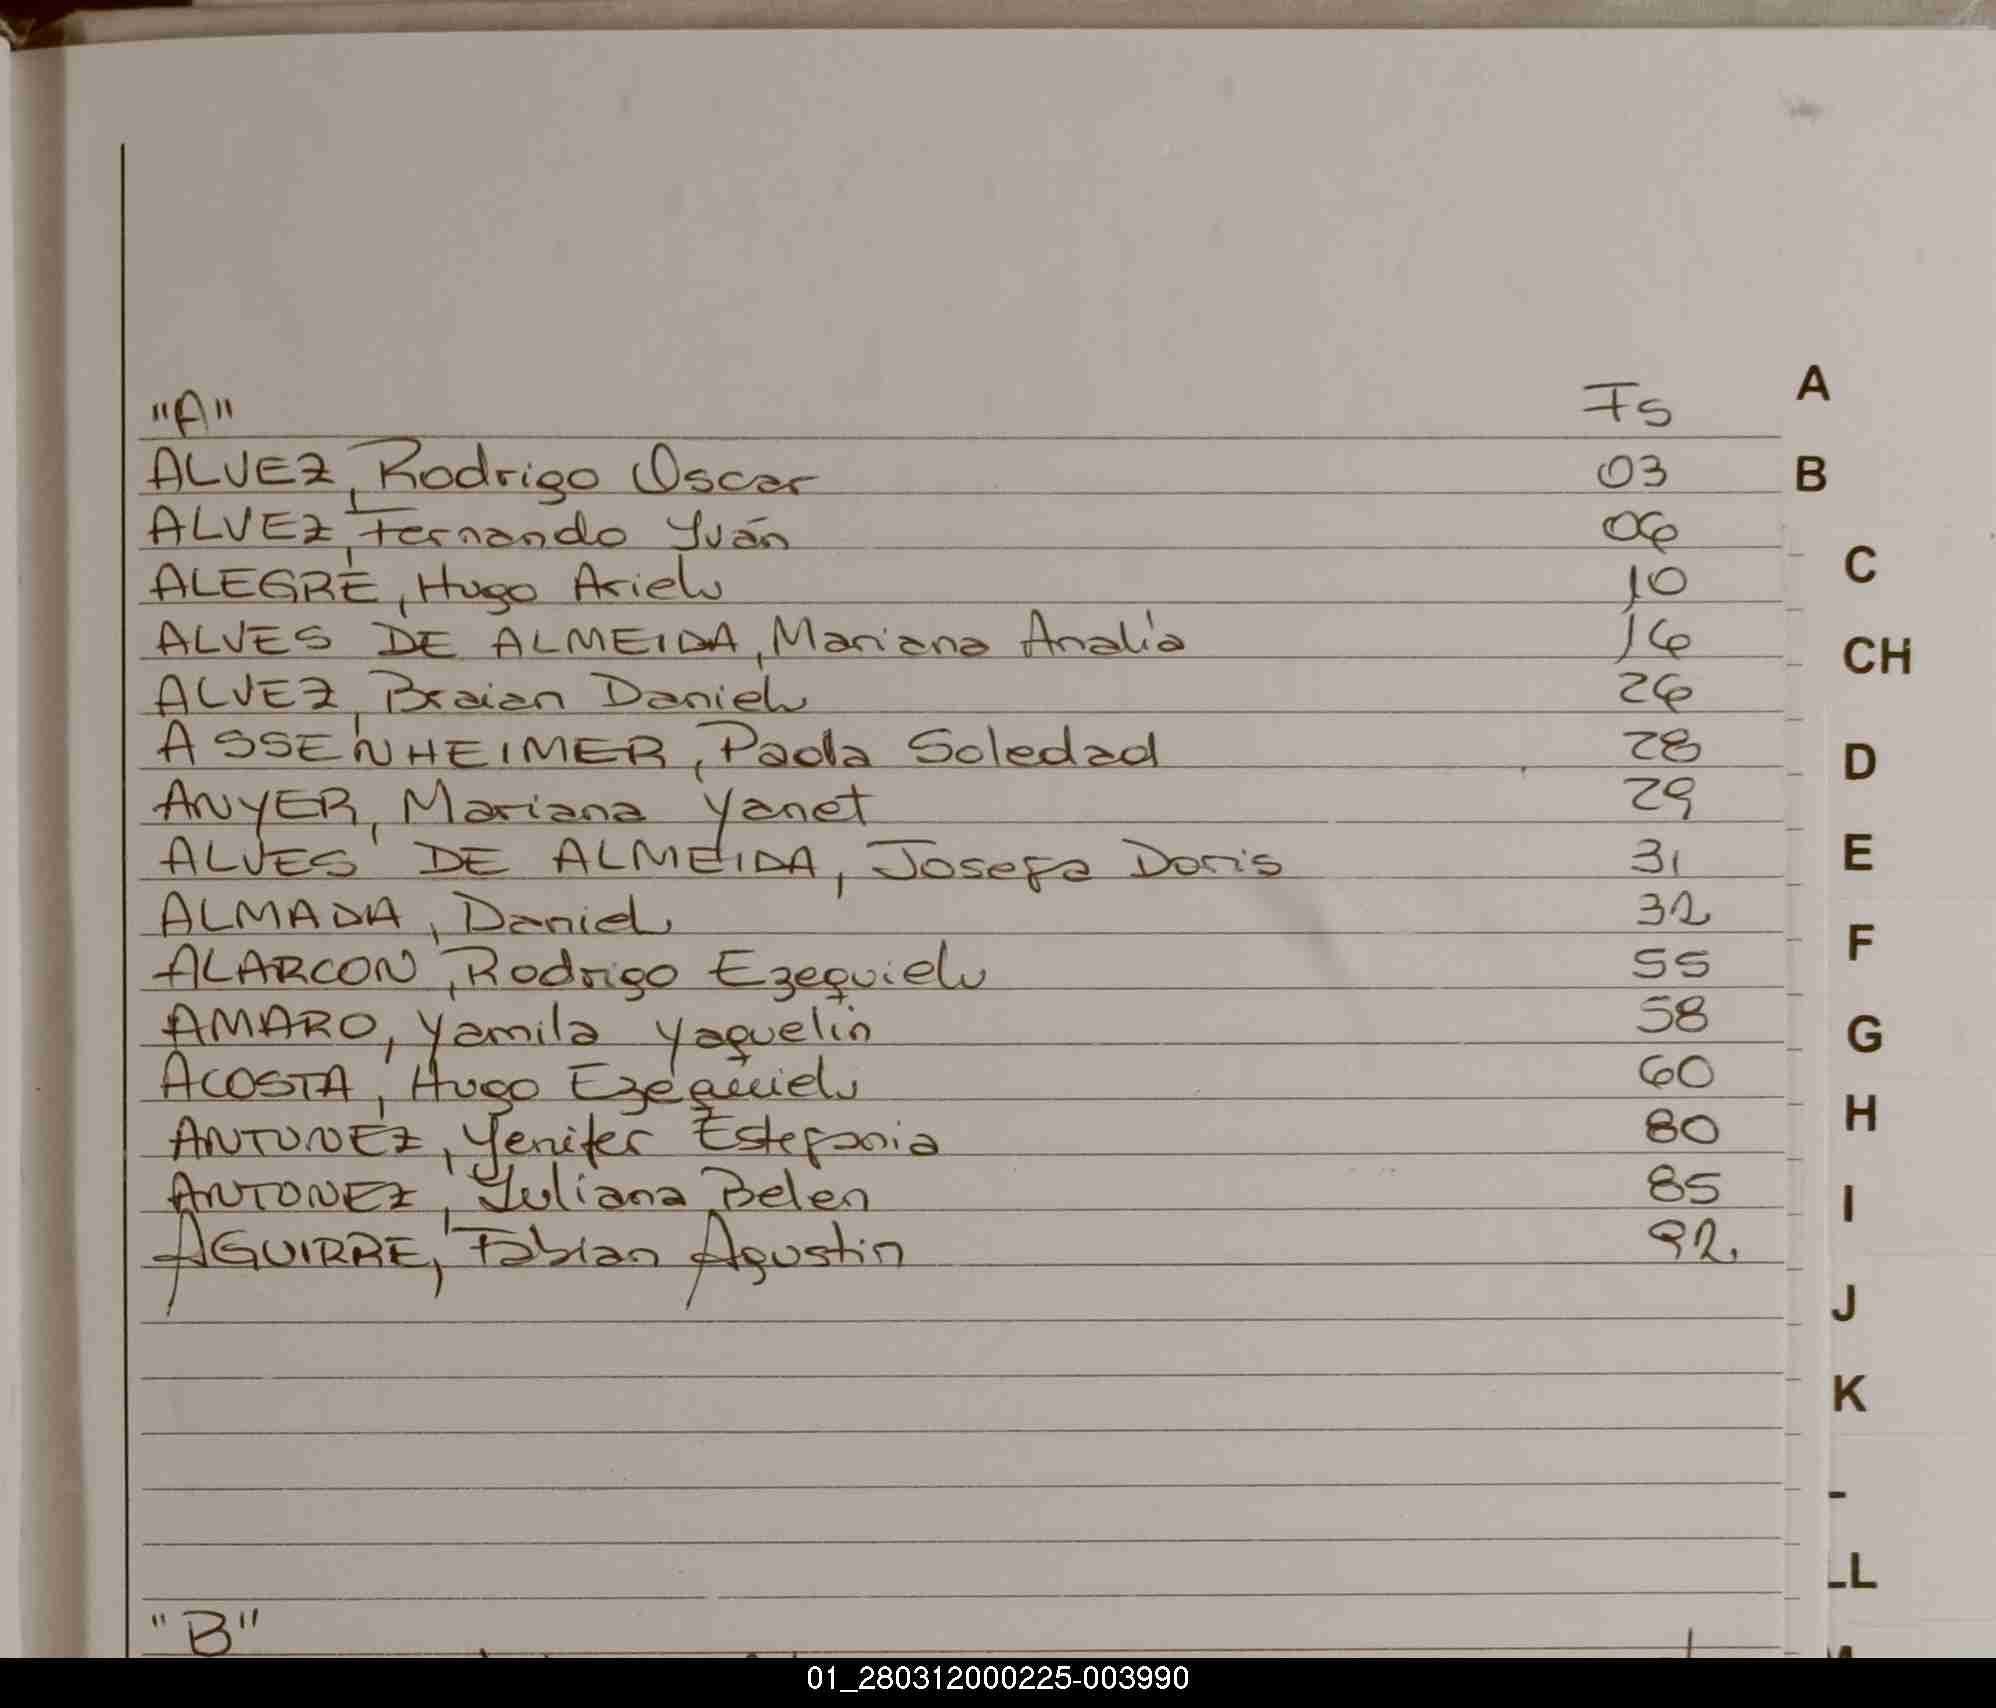 "A" Fs A
ALVEZ, Rodrigo Oscar 03 B
ALVEZ, Fernando Yván 06
ALEGRE, Hugo Ariel 10 C
ALVES DE ALMEIDA, Mariana Analía 16 CH
ALVEZ, Braian Daniel 26
ASSENHEIMER, Paola Soledad 28 D
ANYER, Mariana Yanet 29
ALVES DE ALMEIDA, Josefa Doris 31 E
ALMADA, Daniel 32
ALARCON, Rodrigo Ezequiel 55 F
AMARO, Yamila Yaquelin 58 G
ACOSTA, Hugo Ezequiel 60
ANTUNEZ, Yenifer Estefania 80 H
ANTONEZ, Yuliana Belen 85 I
AGUIRRE, Fabian Agustin 92
J
K
LL
"B"
01_280312000225-003990